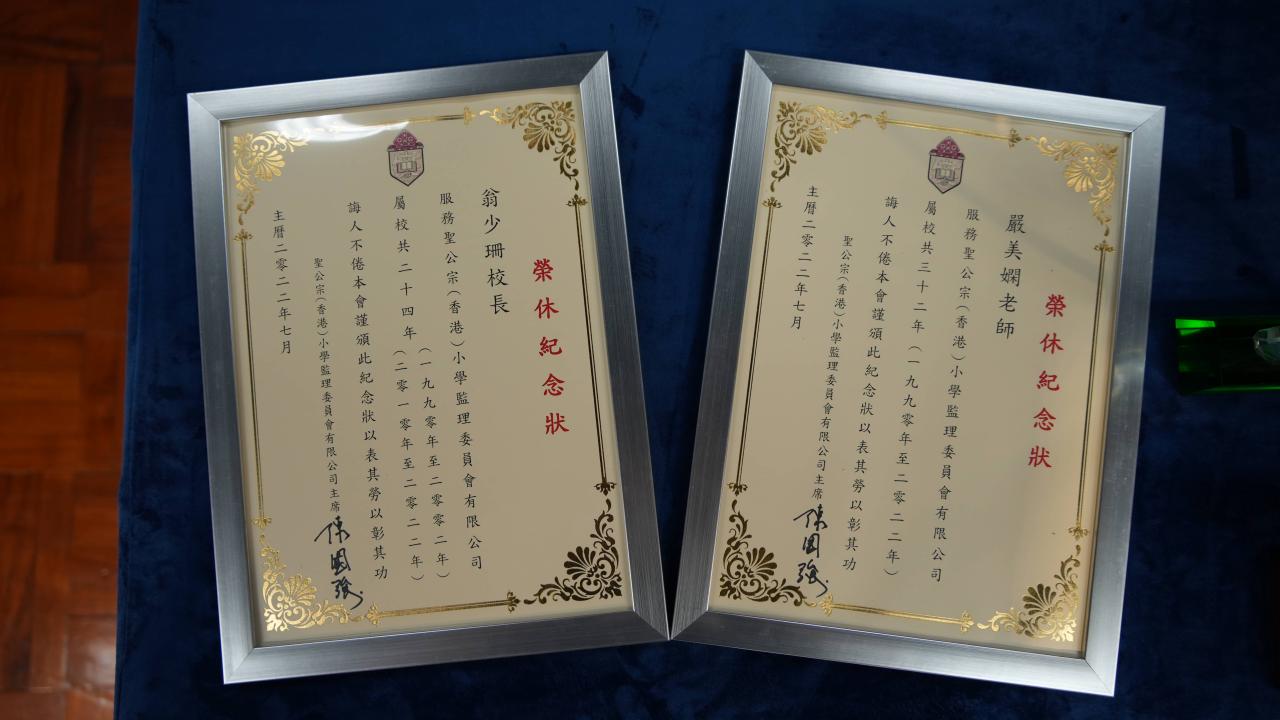 榮休紀念狀
翁少珊校長
服務聖公宗(香港)小學監理委員會有限公司
屬校共二十四年(一九九零年至二零零二年)
(二零一零年至二零二二年)
誨人不倦本會謹頒此紀念狀以表其勞以彰其功
聖公宗(香港)小學監理委員會有限公司主席
陳國強
主曆二零二二年七月
榮休紀念狀
嚴美嫻老師
服務聖公宗(香港)小學監理委員會有限公司
屬校共三十二年(一九九零年至二零二二年)
誨人不倦本會謹頒此紀念狀以表其勞以彰其功
聖公宗(香港)小學監理委員會有限公司主席
陳國強
主曆二零二二年七月